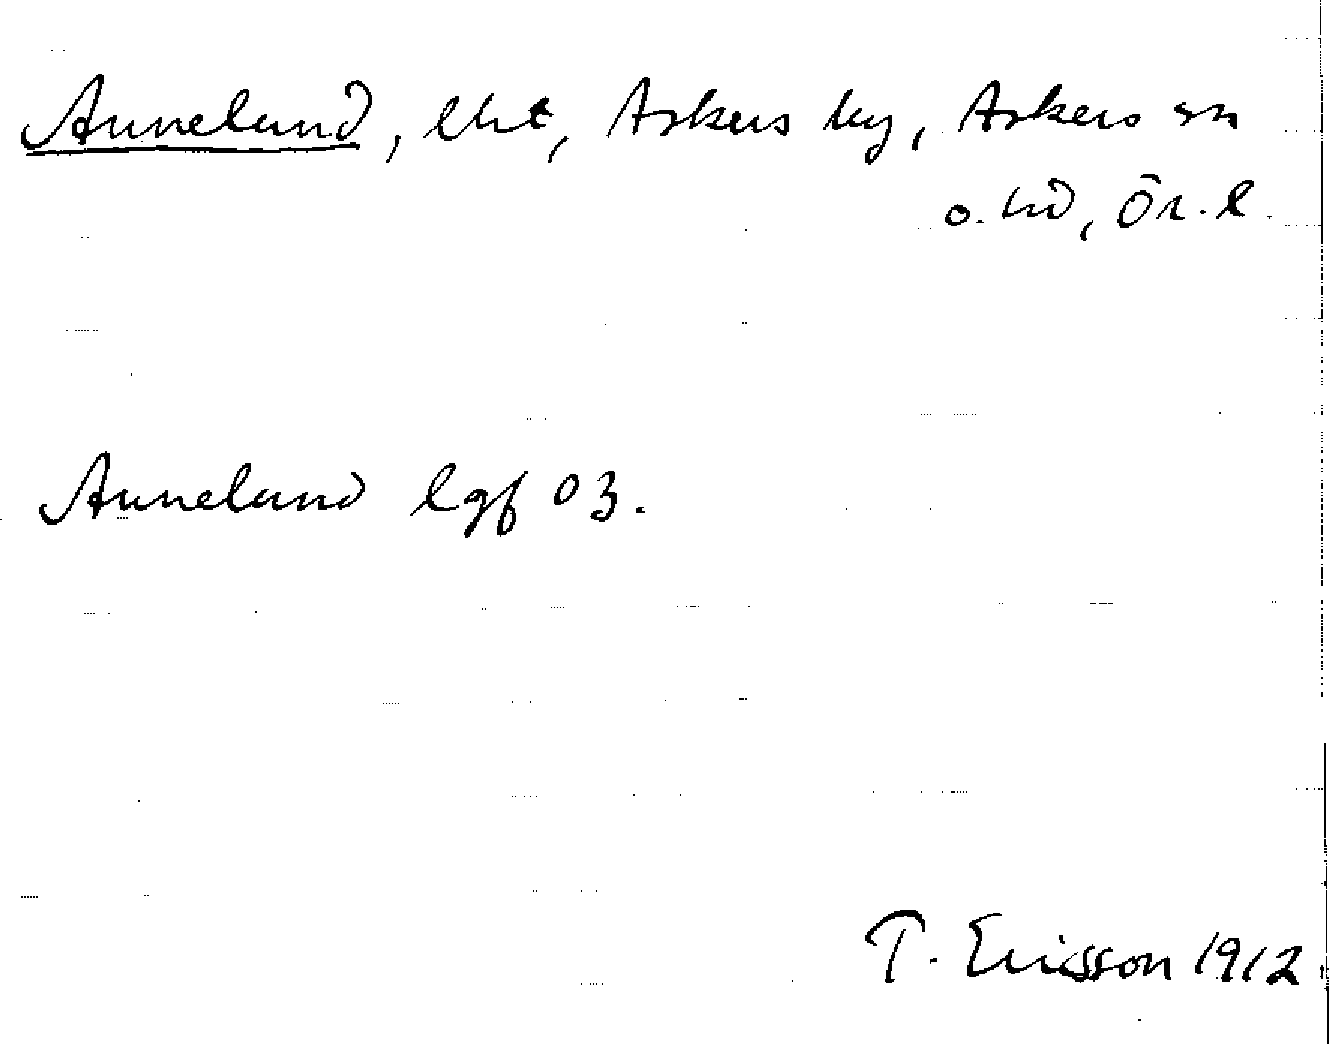 Anneland, lht, Askers by, Askers sn
o. hd, Ör. l.
Anneland lgf 03.
T. Ericsson 1912.